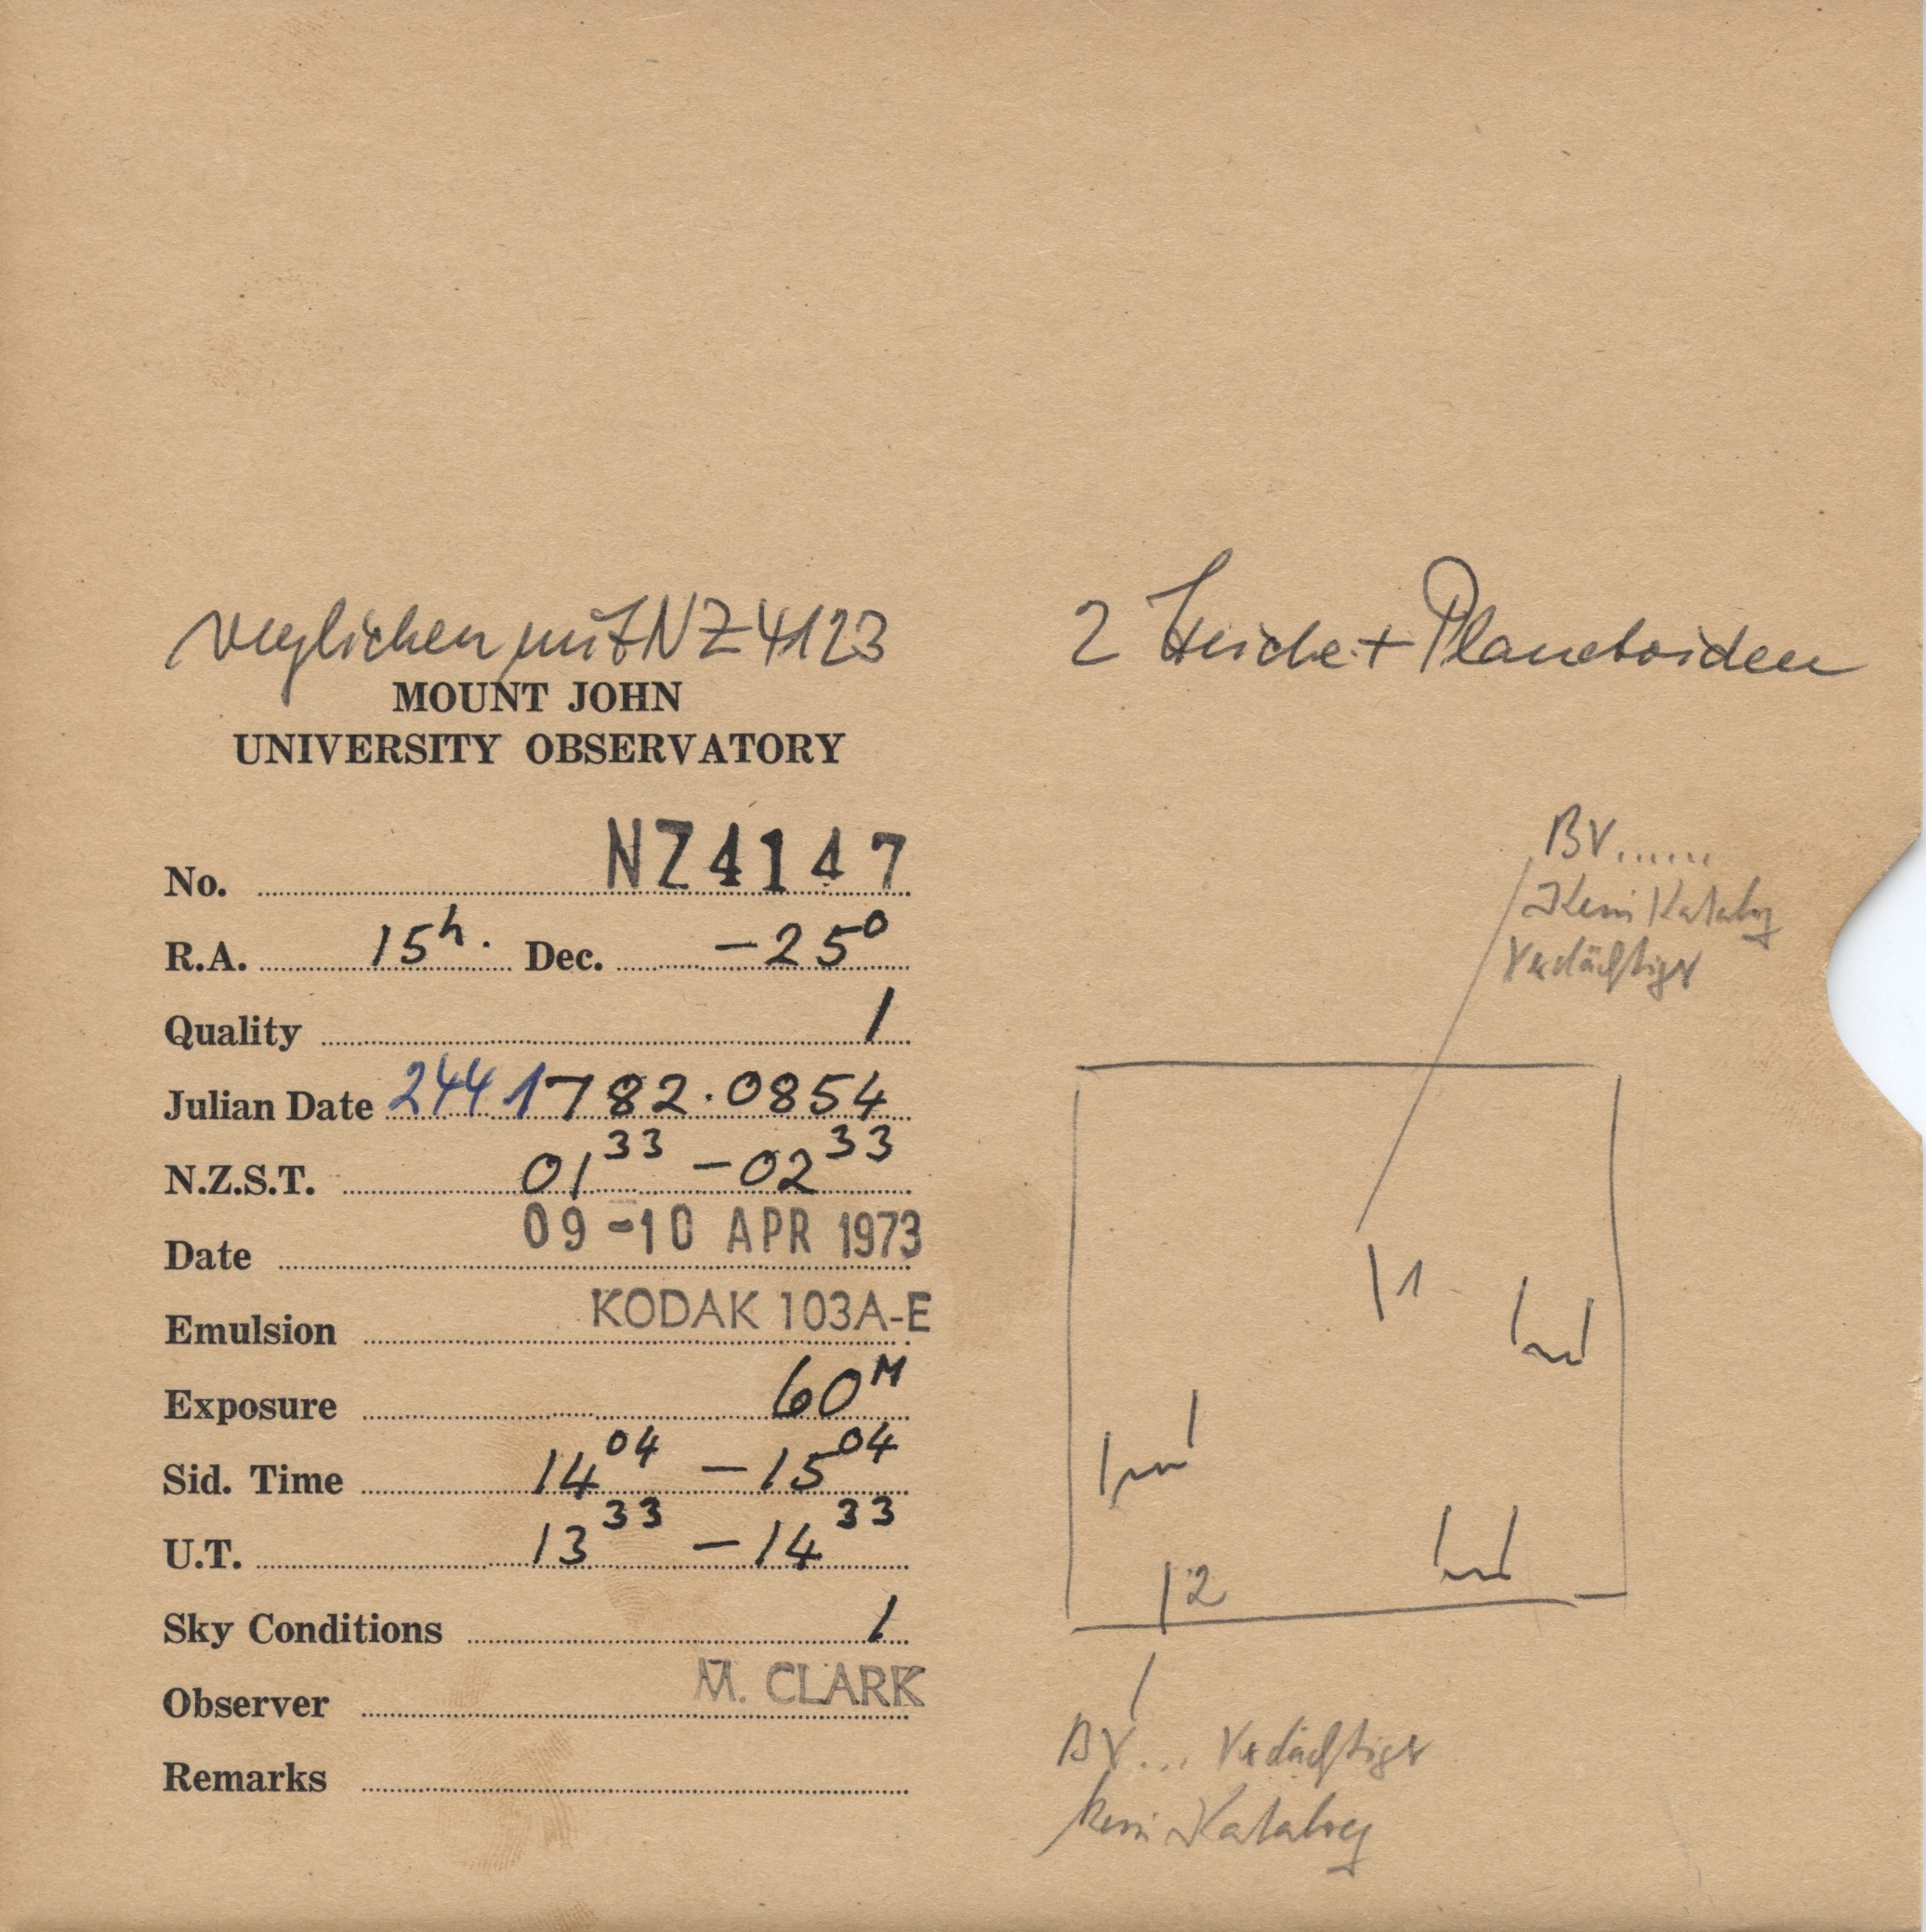 verglichen mit NZ 4123
2 Striche + Planetoiden
MOUNT JOHN
UNIVERSITY OBSERVATORY
No. NZ4147
R.A. 15h. Dec. -25°
Quality 1
Julian Date 2441782.0854
N.Z.S.T. 01 33 - 02 33
Date 09-10 APR 1973
Emulsion KODAK 103A-E
Exposure 60M
Sid. Time 14 04 - 15 04
U.T. 13 33 - 14 33
Sky Conditions 1
Observer M. CLARK
Remarks
BV......
Kein Katalog
Verdächtiger
1
2
BV... Verdächtiger
kein Katalog